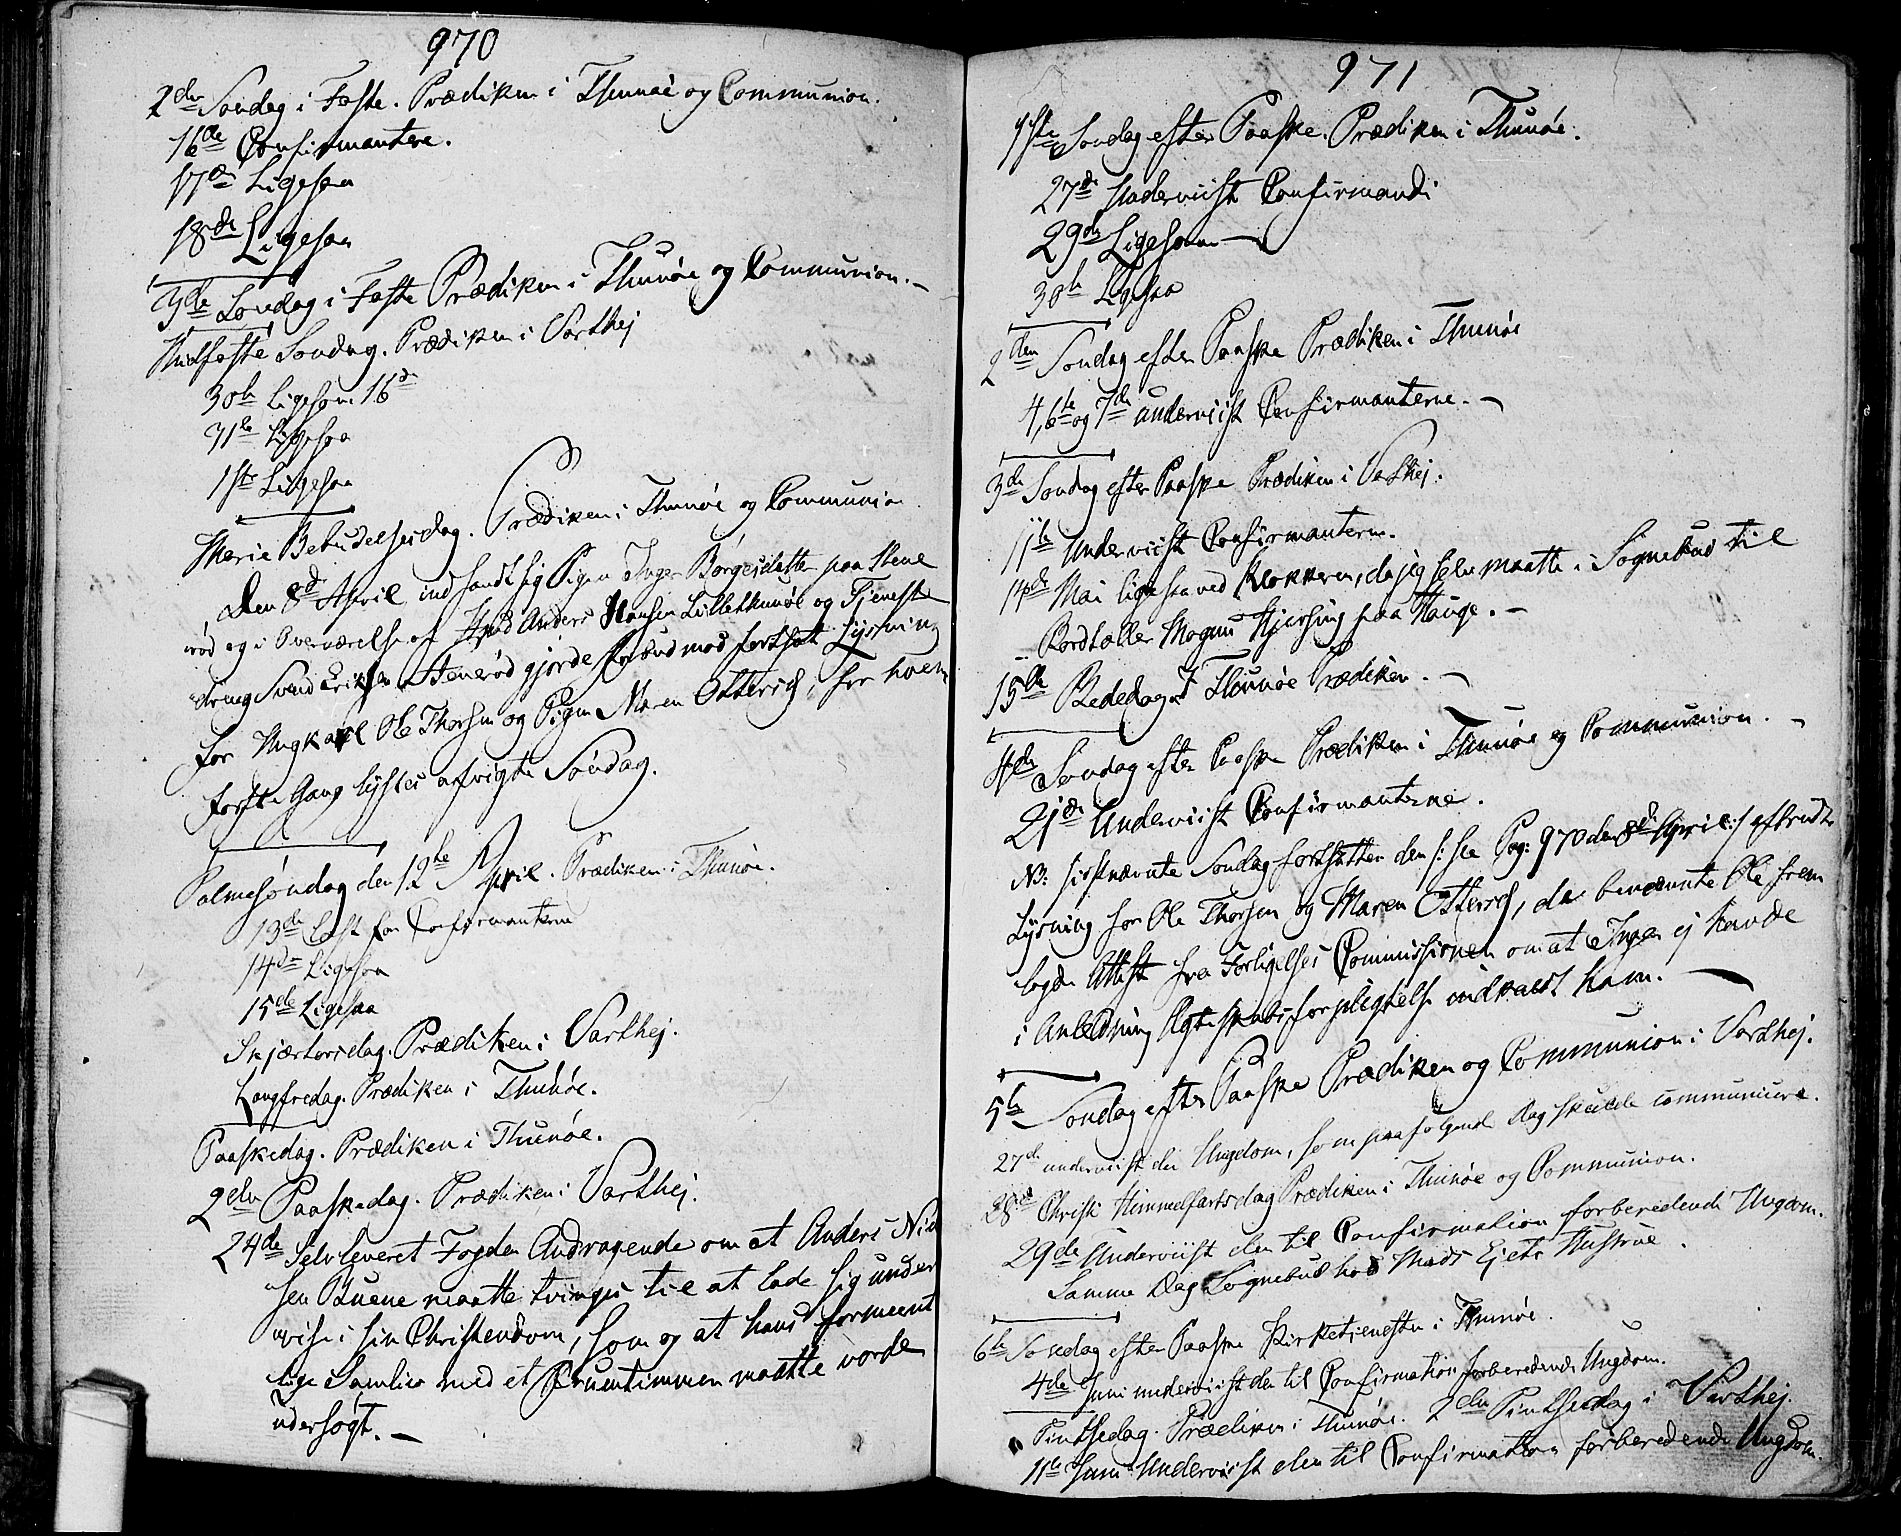 970
2den Søndag i Faste. Prædiken i Thunøe og Communion.
16de Confirmantere.
17de Ligesaa
18de Ligesaa
3de Søndag i Faste Prædiken i Thunøe og Communion.
Midfaste Søndag. Prædiken i Varthej
30te Ligesom 16de
31te Ligesaa
1ste Ligesaa
Mariæ Bebudelsesdag. Prædiken i Thunøe og Communion
Den 8de April indfandt sig Pigen Inger Børgesdatter paa Stene
rød og i Overværelse af Anders Hansen Lillethunøe og Tjeneste
dreng Svend Eriksen Stenerød gjorde Forbud mod fortsat Lysning
for Ungkarl Ole Thorsen og Pigen Maren Ottersd, for hvem
første Gang lystes afvigte Søndag.
Palmesøndag den 12te April. Prædiken i Thunøe.
13de Læst for Confirmanterne
14de Ligesaa
15de Ligesaa
Skjærtorsdag. Prædiken i Varthej.
Langfredag. Prædiken i Thunøe.
Paaskedag. Prædiken i Thunøe.
2den Paaskedag. Prædiken i Varthej.
24de Selv leveret Fogden Andragende om at Anders Niel
sen Buene maatte tvinges til at lade sig under
vise i sin Christendom, som og at hans formeent
lige Samliv med et Fruentimmer maatte vorde
undersøgt.
971
1ste Søndag efter Paaske. Prædiken i Thunøe.
27de Underviist Confirmandi
29de Ligesom
30te Ligesaa
2den Søndag efter Paaske Prædiken i Thunøe
4, 6te og 7de underviist Confirmanterne.
3de Søndag efter Paaske Prædiken i Varthej.
11te Underviist Confirmanterne.
14de Mai ligesaa ved Klokkeren, da jeg selv maatte i Sognebud til
Mogens Hjersing paa Hauge.
15de Bededag i Thunøe Prædiken.
4de Søndag efter Paaske Prædiken i Thunøe og Communion.
21de Underviist Confirmanterne.
NB: sidstnævnte Søndag fortsattes den /: see Pag: 970 den 8de April :/ afbrudte
Lysning for Ole Thorsen og Maren Ottersd, da benævnte Ole frem
lagde Attest fra Forligelses Commissionen om at Inger ej havde
i Anledning Ægteskabsforpligtelse indkaldt ham.
5te Søndag efter Paaske Prædiken og Communion i Varthej.
27de underviist den Ungdom, som paafølgende Dag skulde communicere.
28de Christi Himmelfartsdag Prædiken i Thunøe og Communion.
29de Underviist den til Confirmation forberedende Ungdom.
Samme Dag Sognebud hos Mads Ejets Hustrue.
6te Søndag efter Paaske Kirketjeneste i Thunøe.
4de Juni underviist den til Confirmation forberedende Ungdom.
Pintsedag. Prædiken i Thunøe. 2den Pintsedag i Varthej.
11te Juni Underviist den til Confirmation forberedende Ungdom.